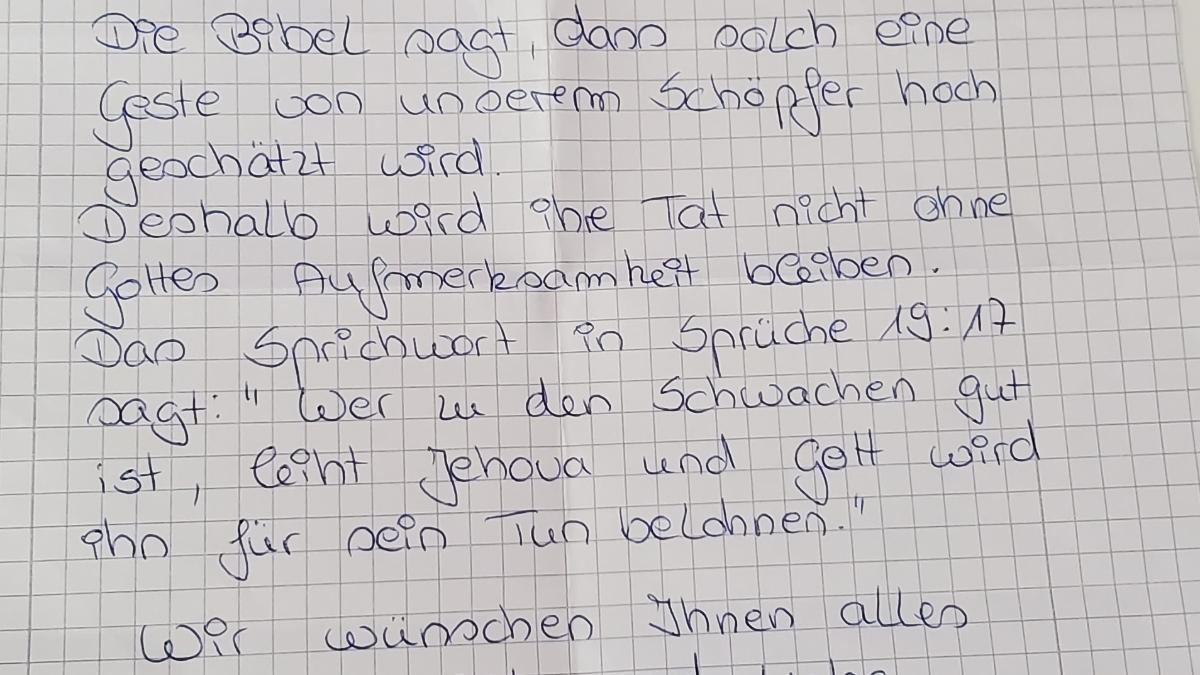 Die Bibel sagt, dass solch eine
Geste von unserem Schöpfer hoch
geschätzt wird.
Deshalb wird ihre Tat nicht ohne
Gottes Aufmerksamkeit bleiben.
Das Sprichwort in Sprüche 19:17
sagt: "Wer zu den Schwachen gut
ist, leiht Jehova und Gott wird
ihn für sein Tun belohnen."
Wir wünschen Ihnen alles